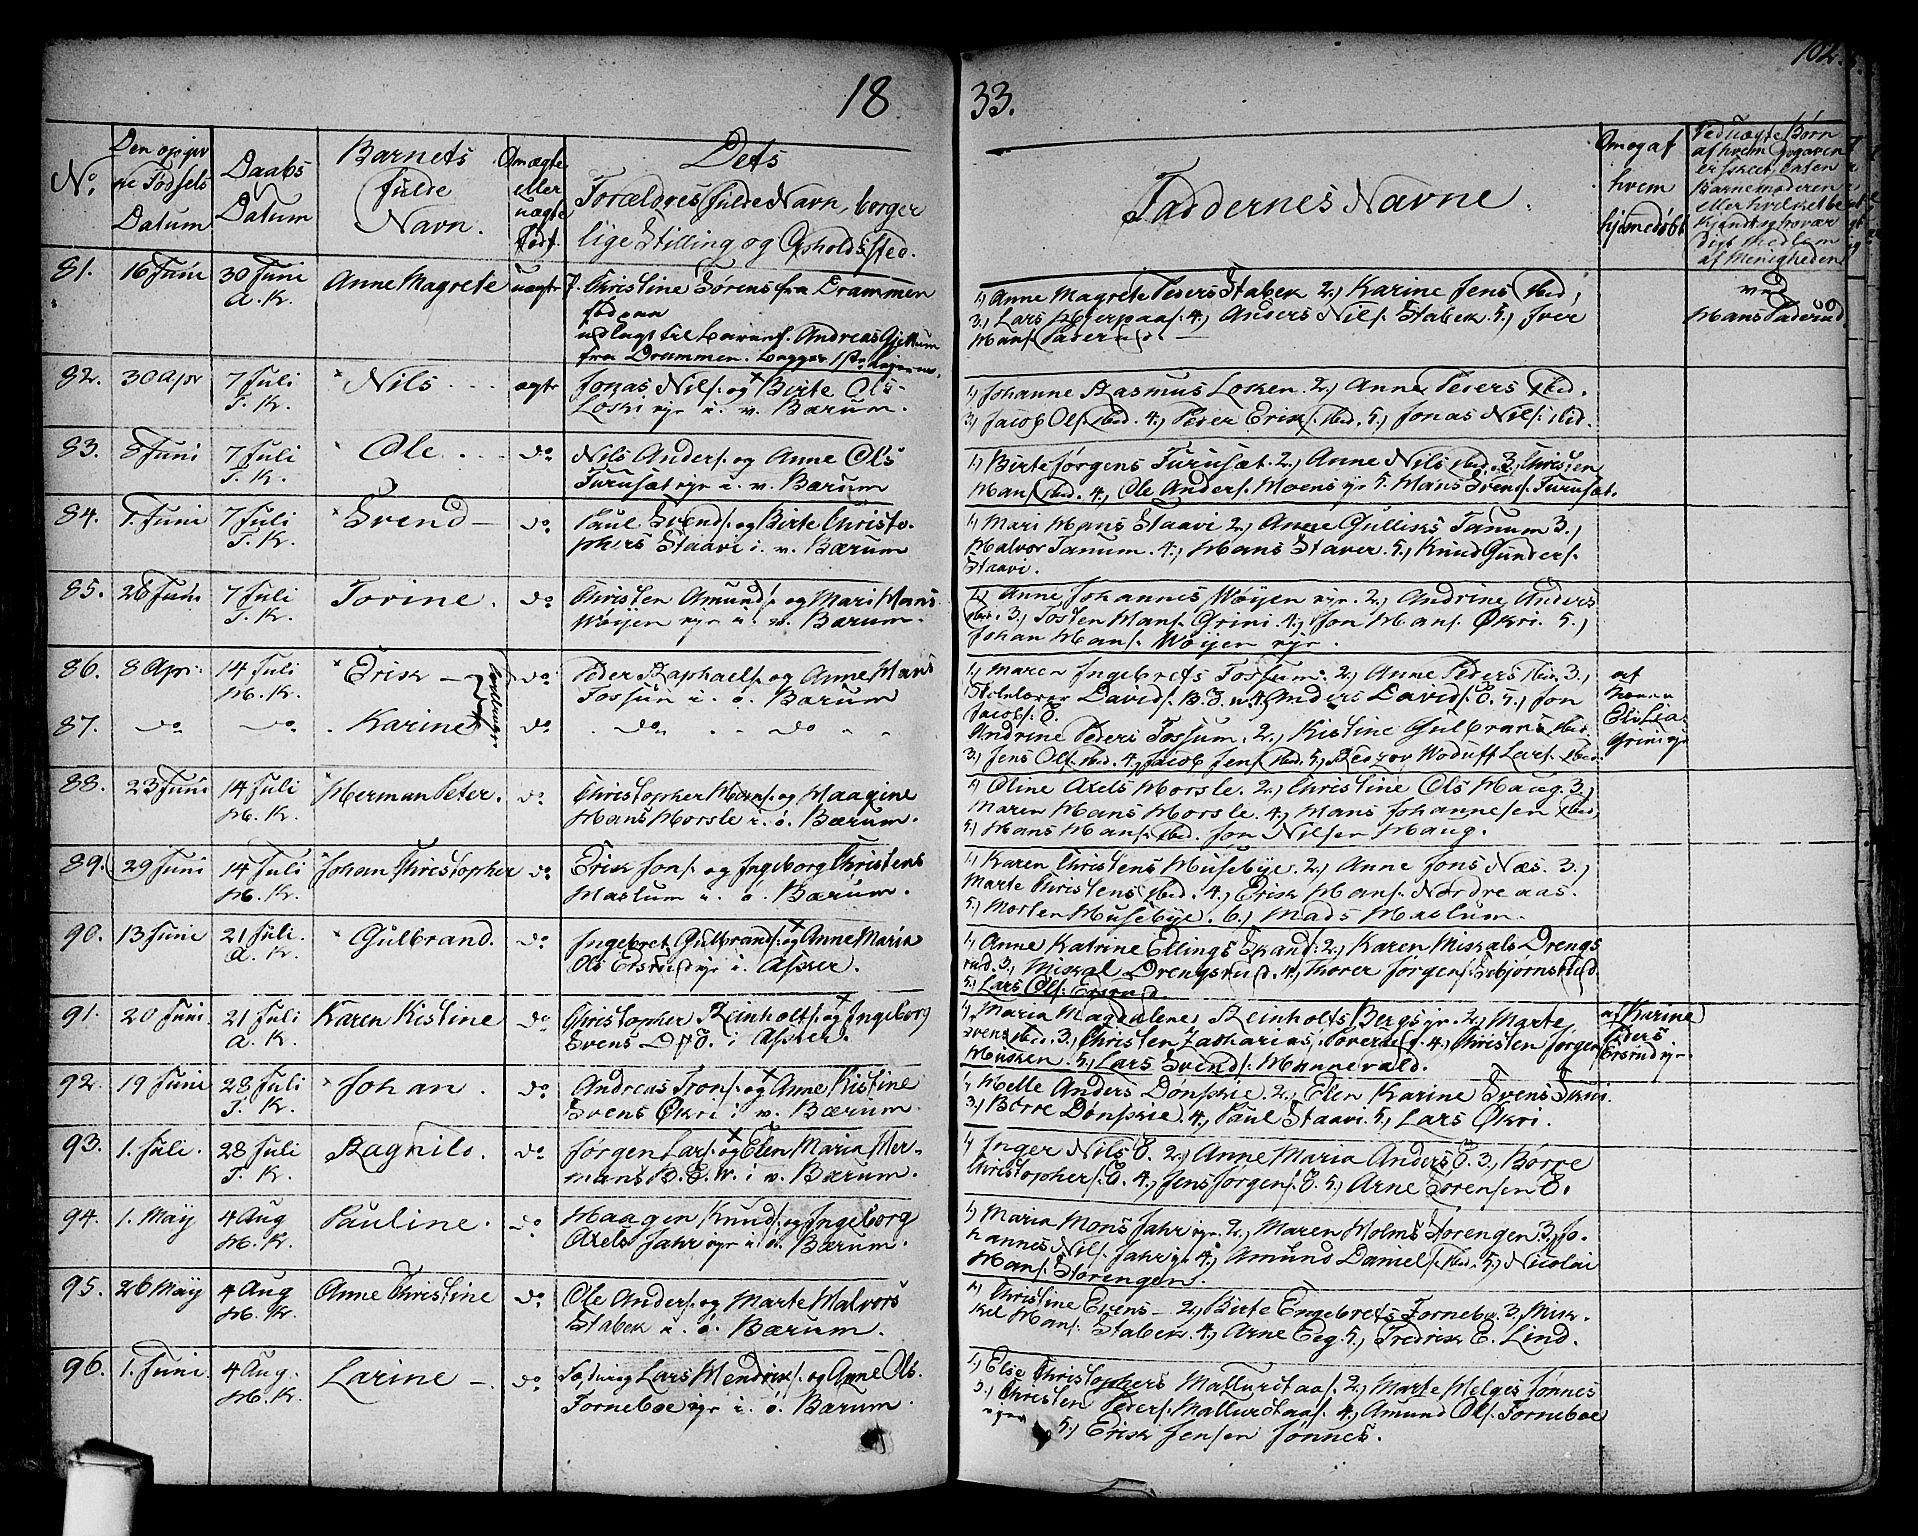 18
33.
102.
No.
Den opgiv
ne Fødsels
Datum
Daabs
Datum
Barnets
fulde
Navn.
Omægte
eller
uægte
født.
Dets
Forældres fulde Navn, borger
lige Stilling og Opholdssted.
Faddernes Navne.
Om og af
hvem
hjemedøbt
Ved uægte Børn
af hvem Opgaven
er skeet, enten
Barnemoderen
eller hvilket be
kjendt og trovær
digt medlem
af Menigheden
81. 16 Juni 30 Juni Anne Magrete uægte 7. Christine Sørens fra Drammen
A. K.
udlagt til barnef. Andreas Gjellum
fra Drammen. begges 1ste Leierm.
1, Anne Magrete Peders Stabek 2, Karine Jens sted,
3, Lars Hjerpaas. 4, Anders Nils. Stabek 5, Iver
Hans. Paderud.
ved
Hans Paderud.
82. 30 Apr 7 Juli Nils ægte Jonas Nils. og Birte Ols
T. K. Loski eje i. v. Bærum.
1, Johanne Rasmus Losken. 2, Anne Peders sted.
3, Jacob Ols. sted. 4, Peder Erik. sted. 5, Jonas Nils. sted.
83. 8 Juni 7 Juli Ole do Nils Anders. og Anne Ols
T. K. Turusæt eje i. v. Bærum
1, Birte Jørgens Turusæt. 2, Anne Nils sted. 3, Christen
Hans. sted. 4, Ole Anders. Moens eje 5. Hans Svends. Turusæt.
84. 1. Juni 7 Juli Svend do Paul Svends. og Birte Christo-
T. K. phers Staavi i. v. Bærum
1, Mari Hans Staavi 2, Anne Gulliks Tanum 3,
Halvor Tanum. 4, Hans Staver 5, Knud Gunders.
Staavi.
85. 26 Juni 7 Juli Torine. do Christen Amunds. og Mari Hans
T. K. Wøijen eje i. v. Bærum.
1, Anne Johannes Wøijen eje. 2, Andrine Anders
sted. 3, Tosten Hans. Grini 4, Jon Hans. Økri. 5,
Johan Hans. Wøijen eje.
86. 8 Apr. 14 Juli Erik do Peder Raphaels. og Anne Hans
H. K. Tvillinger Fossum i. ø. Bærum
1, Maren Ingebrets Fossum. 2, Anne Peders sted 3,
Skolelærer Davids. B. 4, Anders Davids. E. 5, Jon
Jacobs. E.
af
Eli Lia
Grini eje
87. do do Karine do do do
Andrine Peders Fossum. 2, Kistine Gulbrans sted.
3, Jens Ols. sted. 4, Jacob Jens. sted. 5, Lars. sted.
88. 23 Juni 14 Juli Herman Peter. do Christopher Hans. og Haagine
H. K. Hans Horsle i. ø. Bærum.
1, Oline Axels Horsle. 2, Christine Ols Haug. 3,
Maren Hans Horsle. 4, Hans Johannesen sted,
5, Hans Hans. sted. Jon Nilsen Haug.
89. 29 Juni 14 Juli Johan Christopher do Erik Jons. og Ingeborg Christens
H. K. Haslum i. ø. Bærum.
1, Karen Christens Husebye. 2, Anne Jons Næs. 3,
Marte Christens sted. 4, Erik Hans. Nordre aas.
5, Morten Husebye. 6, Mads Haslum.
90. 13 Juni 21 Juli. Gulbrand. do Ingebret Gulbrands. og Anne Maria
A. K. Ols Ersrud eje i. Asker.
1, Anne Katrine Ellings Skands. 2, Karen Miskals Drengs
rud. 3, Miskal Drengsrud. 4, Thorer Jørgens. Esbjørnsrud.
5, Lars Ols. Ersrud.
91. 20 Juni 21 Juli Karen Kistine do Christopher Reinholts. og Ingeborg
A. K. Svens D. E. i Asker.
1, Maria Magdalene Reinholts Bergs eje. 2, Marte
Svens sted. 3, Christen Zacharias. 4, Christen Jørgens.
Husken. 5, Lars Svends. Hunnevald.
af Karine
Peders
Ersrud eje
92. 19 Juni 28 Juli Johan. do Andreas Trons. og Anne Kistine
T. K. Svens Økri i v. Bærum
1, Helle Anders Dønskie. 2, Elen Karine Svens Skui
3, Børre Dønskie. 4, Paul Staavi. 5, Lars Økri.
93. 1. Juli. 28 Juli Ragnild. do Jørgen Lars. og Elen Maria Her-
T. K. mans B. E. W. i v. Bærum.
1, Inger Nils E. 2, Anne Maria Anders E. 3, Børre
Christophers. E. 4, Jens Jørgens. E. 5, Arne Sørensen E.
94. 1. May 4 Aug Pauline. do Haagen Knuds. og Ingeborg
H. K. Axels Jahr eje i ø. Bærum.
1, Maria Mons Jahr eje. 2, Maren Holms Storengen 3, Jo-
hannes Nils. Jahr eje 4, Amund Daniels. sted. 5, Nicolai
Hans. Storengen.
95. 26 May 4 Aug Anne Christine do Ole Anders. og Marte Halvors
H. K. Stabek i. ø. Bærum.
1, Christine Evens – 2, Birte Engebrets Fornebo. 3, Misk.
kel Hans. Stabek. 4, Arne Eeg. 5, Fredrik E. Lind.
96. 1. Juni 4 Aug. Larine – do Lars Hendriks. og Anne Ols.
H. K. Forneboe eje i. ø. Bærum.
1, Else Christophers Mallurdtaas. 2, Marte Helges Fønnes
3, Christen Peders. Mallurdtaas. 4, Amund Ols. Forneboe
5, Erik Jensen Fønnes.